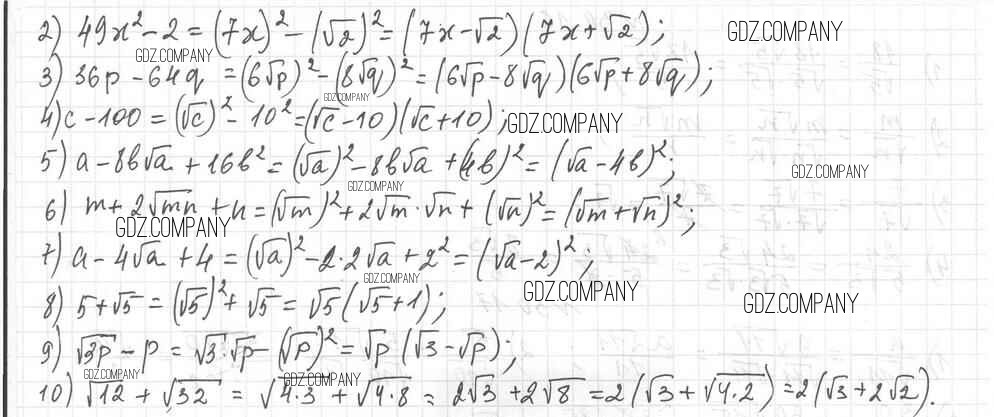 2) 49x² - 2 = (7x)² - (√2)² = (7x - √2)(7x + √2); GDZ.COMPANY
GDZ.COMPANY
3) 36p - 64q = (6√p)² - (8√q)² = (6√p - 8√q)(6√p + 8√q);
GDZ.COMPANY
4) c - 100 = (√c)² - 10² = (√c - 10)(√c + 10); GDZ.COMPANY
5) a - 8b√a + 16b² = (√a)² - 8b√a + (4b)² = (√a - 4b)²; GDZ.COMPANY
GDZ.COMPANY
6) m + 2√mn + n = (√m)² + 2√m · √n + (√n)² = (√m + √n)²;
GDZ.COMPANY
7) a - 4√a + 4 = (√a)² - 2·2√a + 2² = (√a - 2)²;
GDZ.COMPANY GDZ.COMPANY GDZ.COMPANY
8) 5 + √5 = (√5)² + √5 = √5(√5 + 1);
9) √3p - p = √3 · √p - (√p)² = √p(√3 - √p);
GDZ.COMPANY GDZ.COMPANY
10) √12 + √32 = √4·3 + √4·8 = 2√3 + 2√8 = 2(√3 + √4·2) = 2(√3 + 2√2).